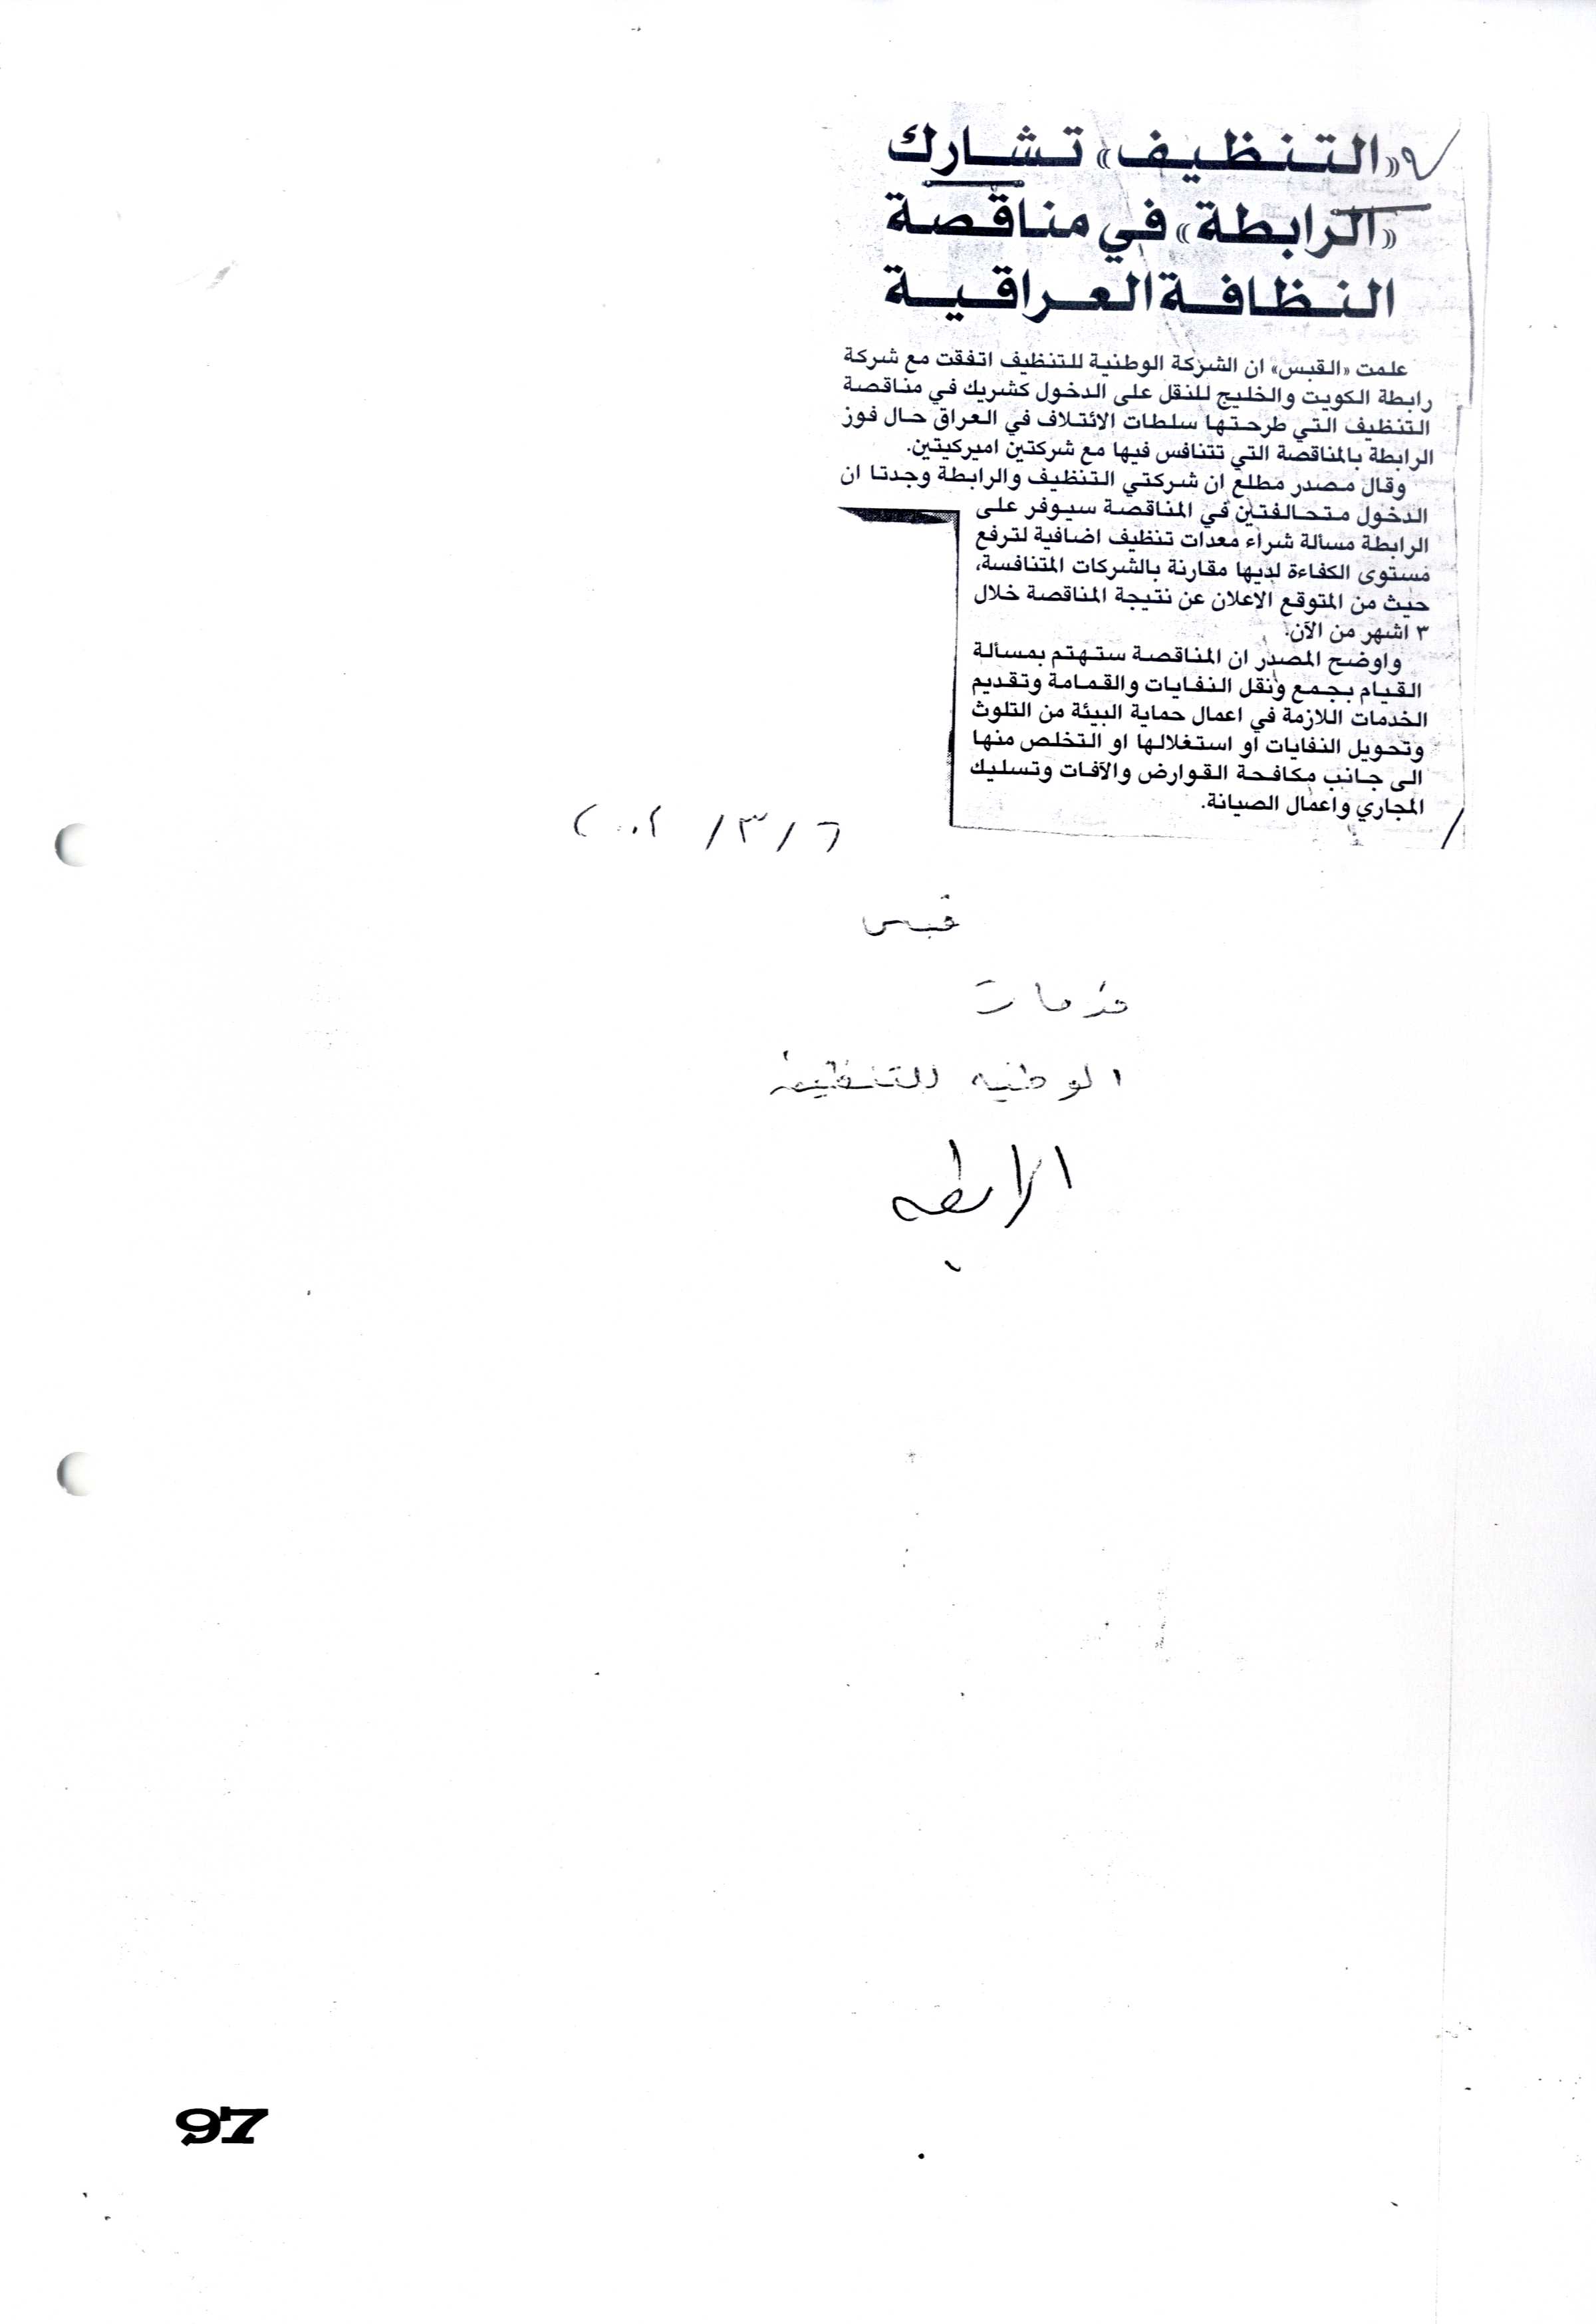 «التنظيف» تشارك
«الرابطة» في مناقصة
النظافة العراقية
علمت «القبس» ان الشركة الوطنية للتنظيف اتفقت مع شركة
رابطة الكويت والخليج للنقل على الدخول كشريك في مناقصة
التنظيف التي طرحتها سلطات الائتلاف في العراق حال فوز
الرابطة بالمناقصة التي تتنافس فيها مع شركتين اميركيتين.
وقال مصدر مطلع ان شركتي التنظيف والرابطة وجدتا ان
الدخول متحالفتين في المناقصة سيوفر على
الرابطة مسألة شراء معدات تنظيف اضافية لترفع
مستوى الكفاءة لديها مقارنة بالشركات المتنافسة،
حيث من المتوقع الاعلان عن نتيجة المناقصة خلال
٣ اشهر من الآن.
واوضح المصدر ان المناقصة ستهتم بمسألة
القيام بجمع ونقل النفايات والقمامة وتقديم
الخدمات اللازمة في اعمال حماية البيئة من التلوث
وتحويل النفايات او استغلالها او التخلص منها
الى جانب مكافحة القوارض والآفات وتسليك
المجاري واعمال الصيانة.
٦ / ٣ /
قبس
خدمات
الوطنيه للتنظيف
الرابطه
97